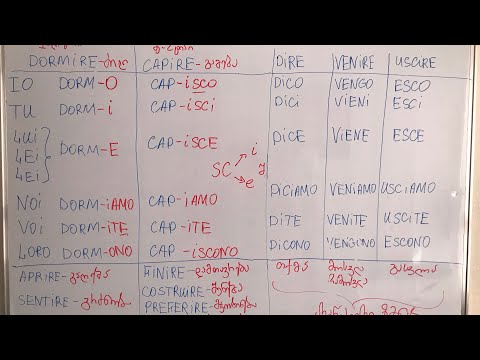 DORMIRE-ძილი CAPIRE-გაგება DIRE VENIRE USCIRE
IO DORM-O CAP-iSCO DiCO VENGO ESCO
TU DORM-i CAP-iSCi DiCi ViENi ESCi
LUi
LEi DORM-E CAP-iSCE DiCE ViENE ESCE
LEi
SC i
e
NOi DORM-iAMO CAP-iAMO DiCiAMO VENiAMO USCiAMO
VOi DORM-iTE CAP-iTE DiTE VENiTE USCiTE
LORO DORM-ONO CAP-iSCONO DiCONO VENGONO ESCONO
APRIRE-გაღება FINIRE-დამთავრება თქმა მოსვლა გასვლა
SENTIRE-გრძნობა COSTRUIRE-შენება
PREFERIRE-